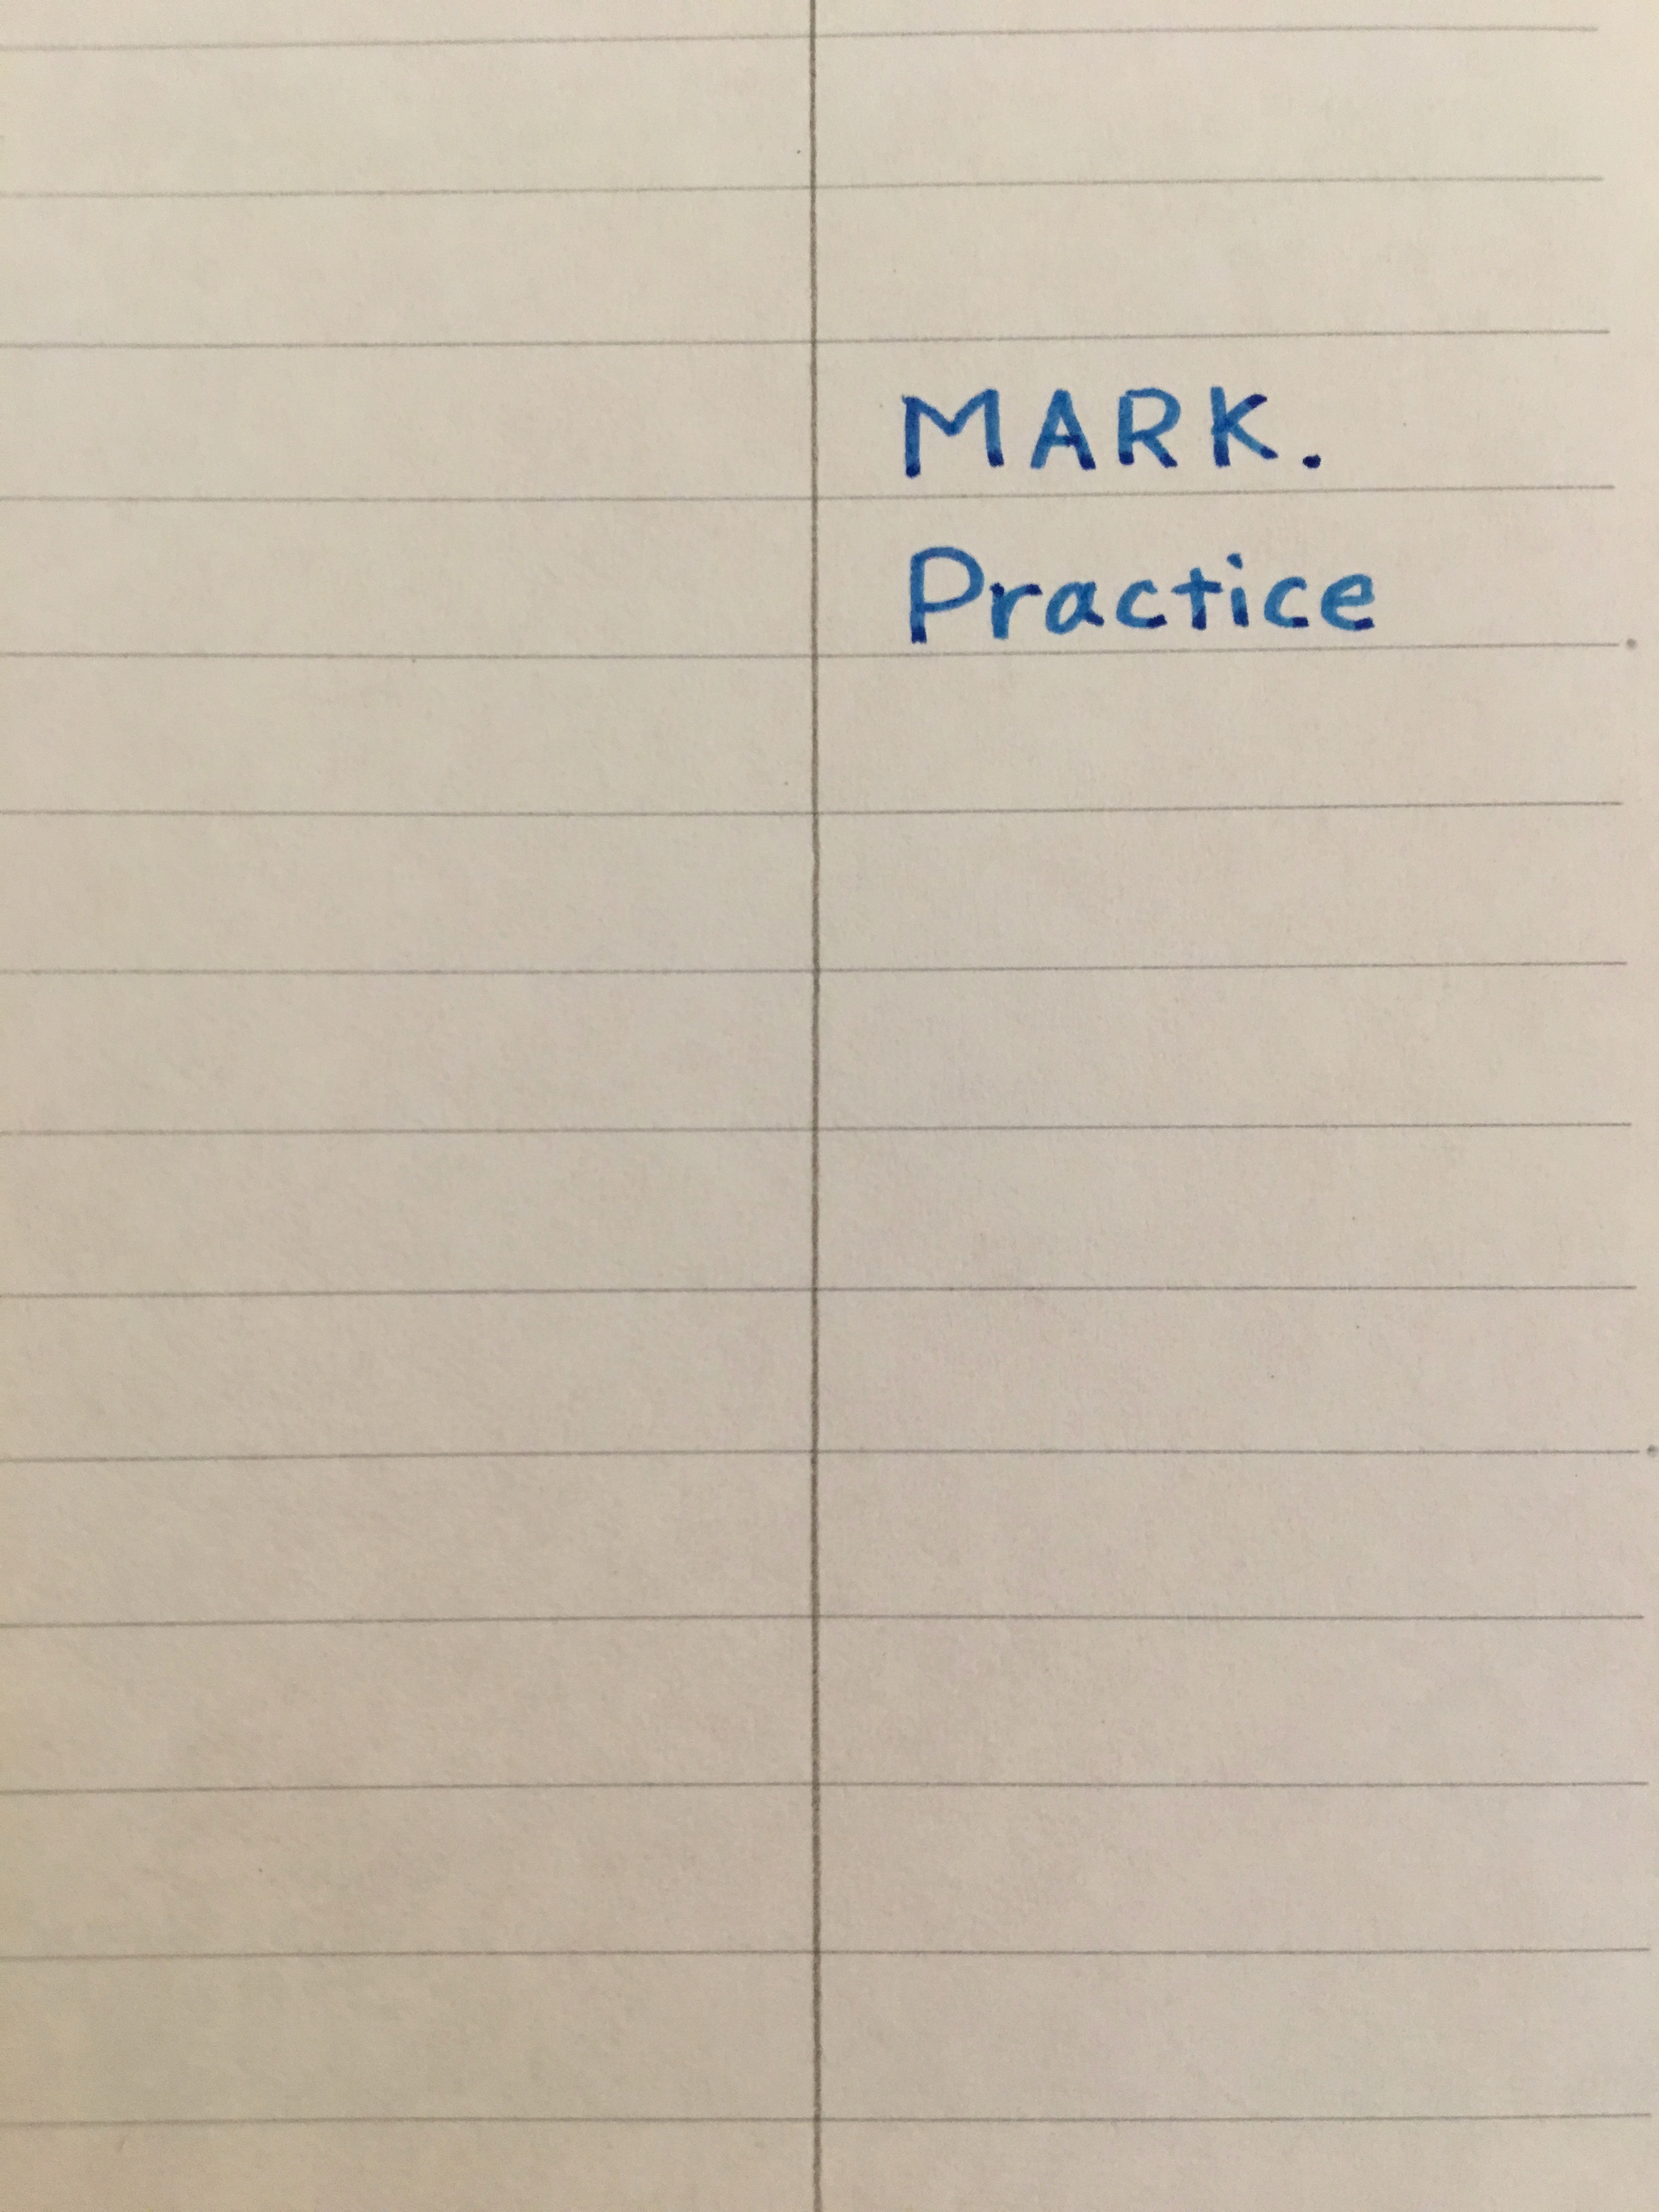 MARK.
Practice